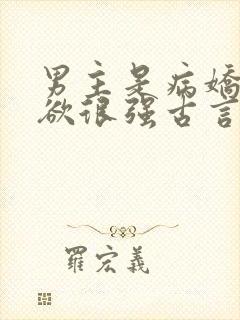 男主是病嬌
欲很强古言
羅宏義